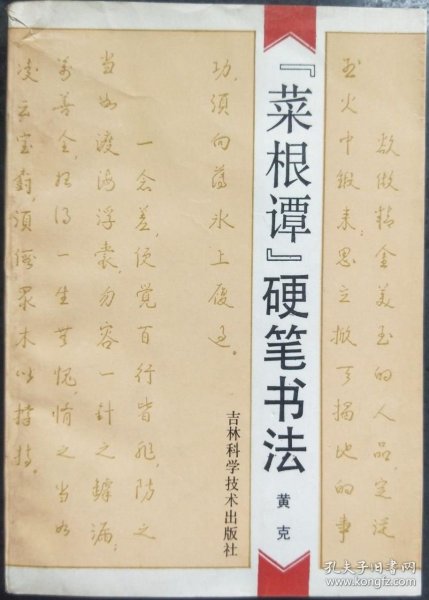 欲做精金美玉的人品定從
烈火中锻来；思立掀天揭地的事
『菜根谭』硬笔书法
黄克
功，须向薄冰上履过。
吉林科学技术出版社
一念差，便觉百行皆非，防之
当如渡海浮囊，勿容一针之罅漏；
萬善全，始得一生無愧，修之当如
凌云宝树，须假众木以撑持。
孔夫子旧书网
www.kongfz.com